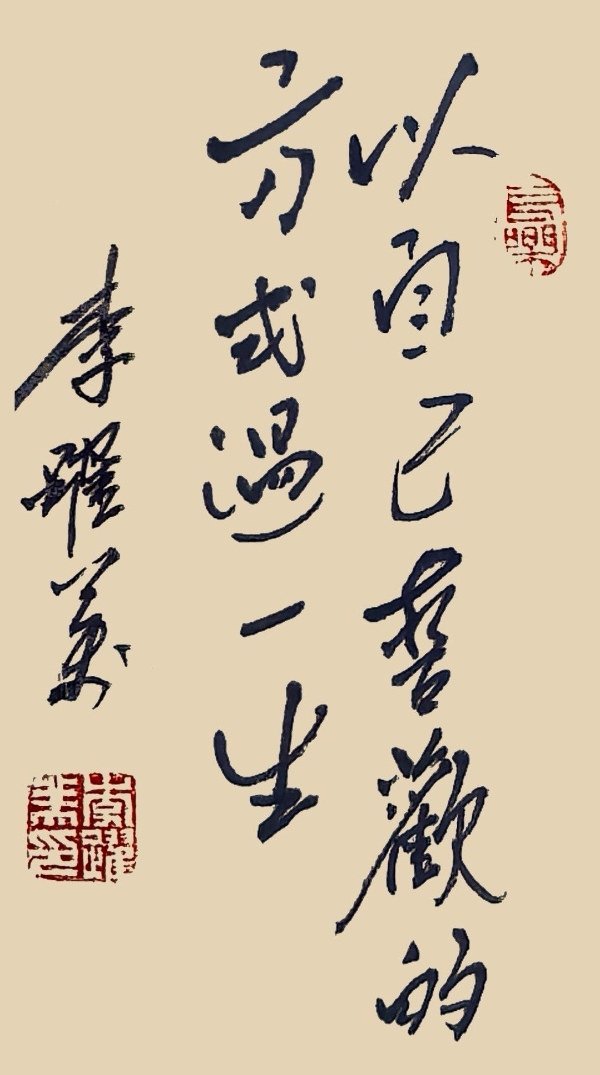 以自己喜歡的
方式過一生
李躍美